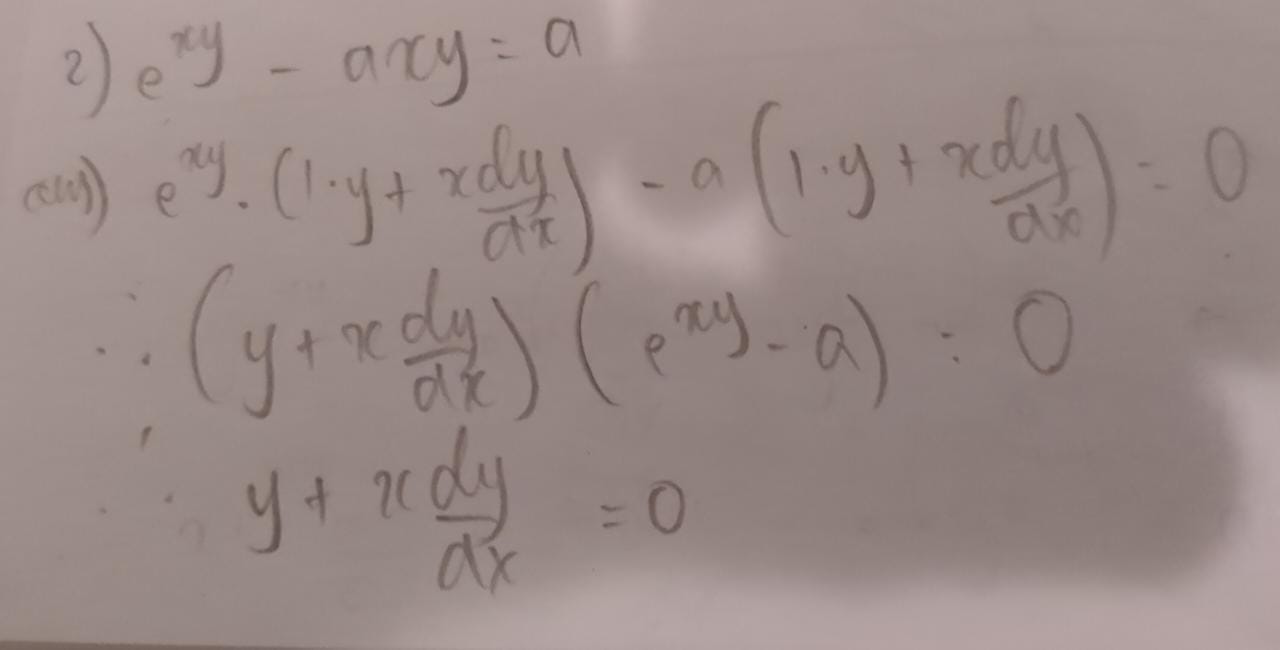 2) e^{xy} - axy = a
e^{xy} · (1·y + x dy/dx) - a (1·y + x dy/dx) = 0
∴ (y + x dy/dx) (e^{xy} - a) = 0
∴ y + x dy/dx = 0